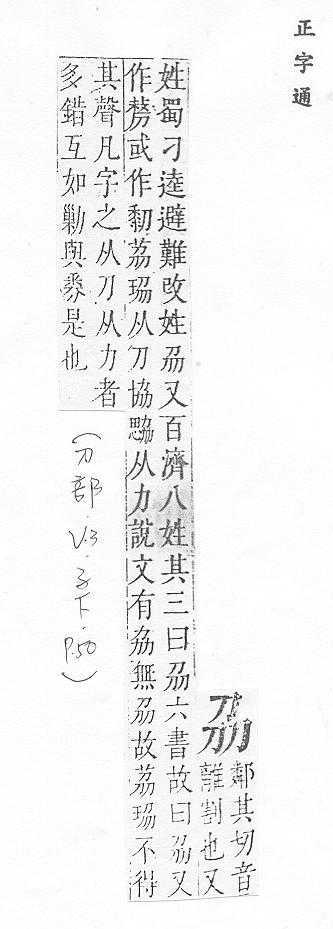 正字通
刕
鄰其切音
離割也又
姓蜀刁逵避難改姓刕又百濟八姓其三曰刕六書故曰刕又
作剺或作荔珕从刀協勰从力說文有劦無刕故荔珕不得
其聲凡字之从刀从力者
多錯互如勦與是也
(刀部．V.3．子下．P.50)